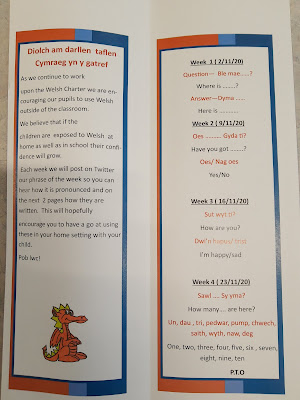 Diolch am darllen taflen
Cymraeg yn y gatref
As we continue to work
upon the Welsh Charter we are en-
couraging our pupils to use Welsh
outside of the classroom.
We believe that if the
children are exposed to Welsh at
home as well as in school their confi-
dence will grow.
Each week we will post on Twitter
our phrase of the week so you can
hear how it is pronounced and on
the next 2 pages how they are
written. This will hopefully
encourage you to have a go at using
these in your home setting with your
child.
Pob lwc!
Week 1 ( 2/11/20)
Question— Ble mae.....?
Where is ........?
Answer—Dyma .....
Here is ..........
Week 2 ( 9/11/20)
Oes .......... Gyda ti?
Have you got ........?
Oes/ Nag oes
Yes/No
Week 3 ( 16/11/20)
Sut wyt ti?
How are you?
Dwi'n hapus/ trist
I'm happy/sad
Week 4 ( 23/11/20)
Sawl .... Sy yma?
How many.... are here?
Un, dau , tri, pedwar, pump, chwech,
saith, wyth, naw, deg
One, two, three, four, five, six , seven,
eight, nine, ten
P.T.O